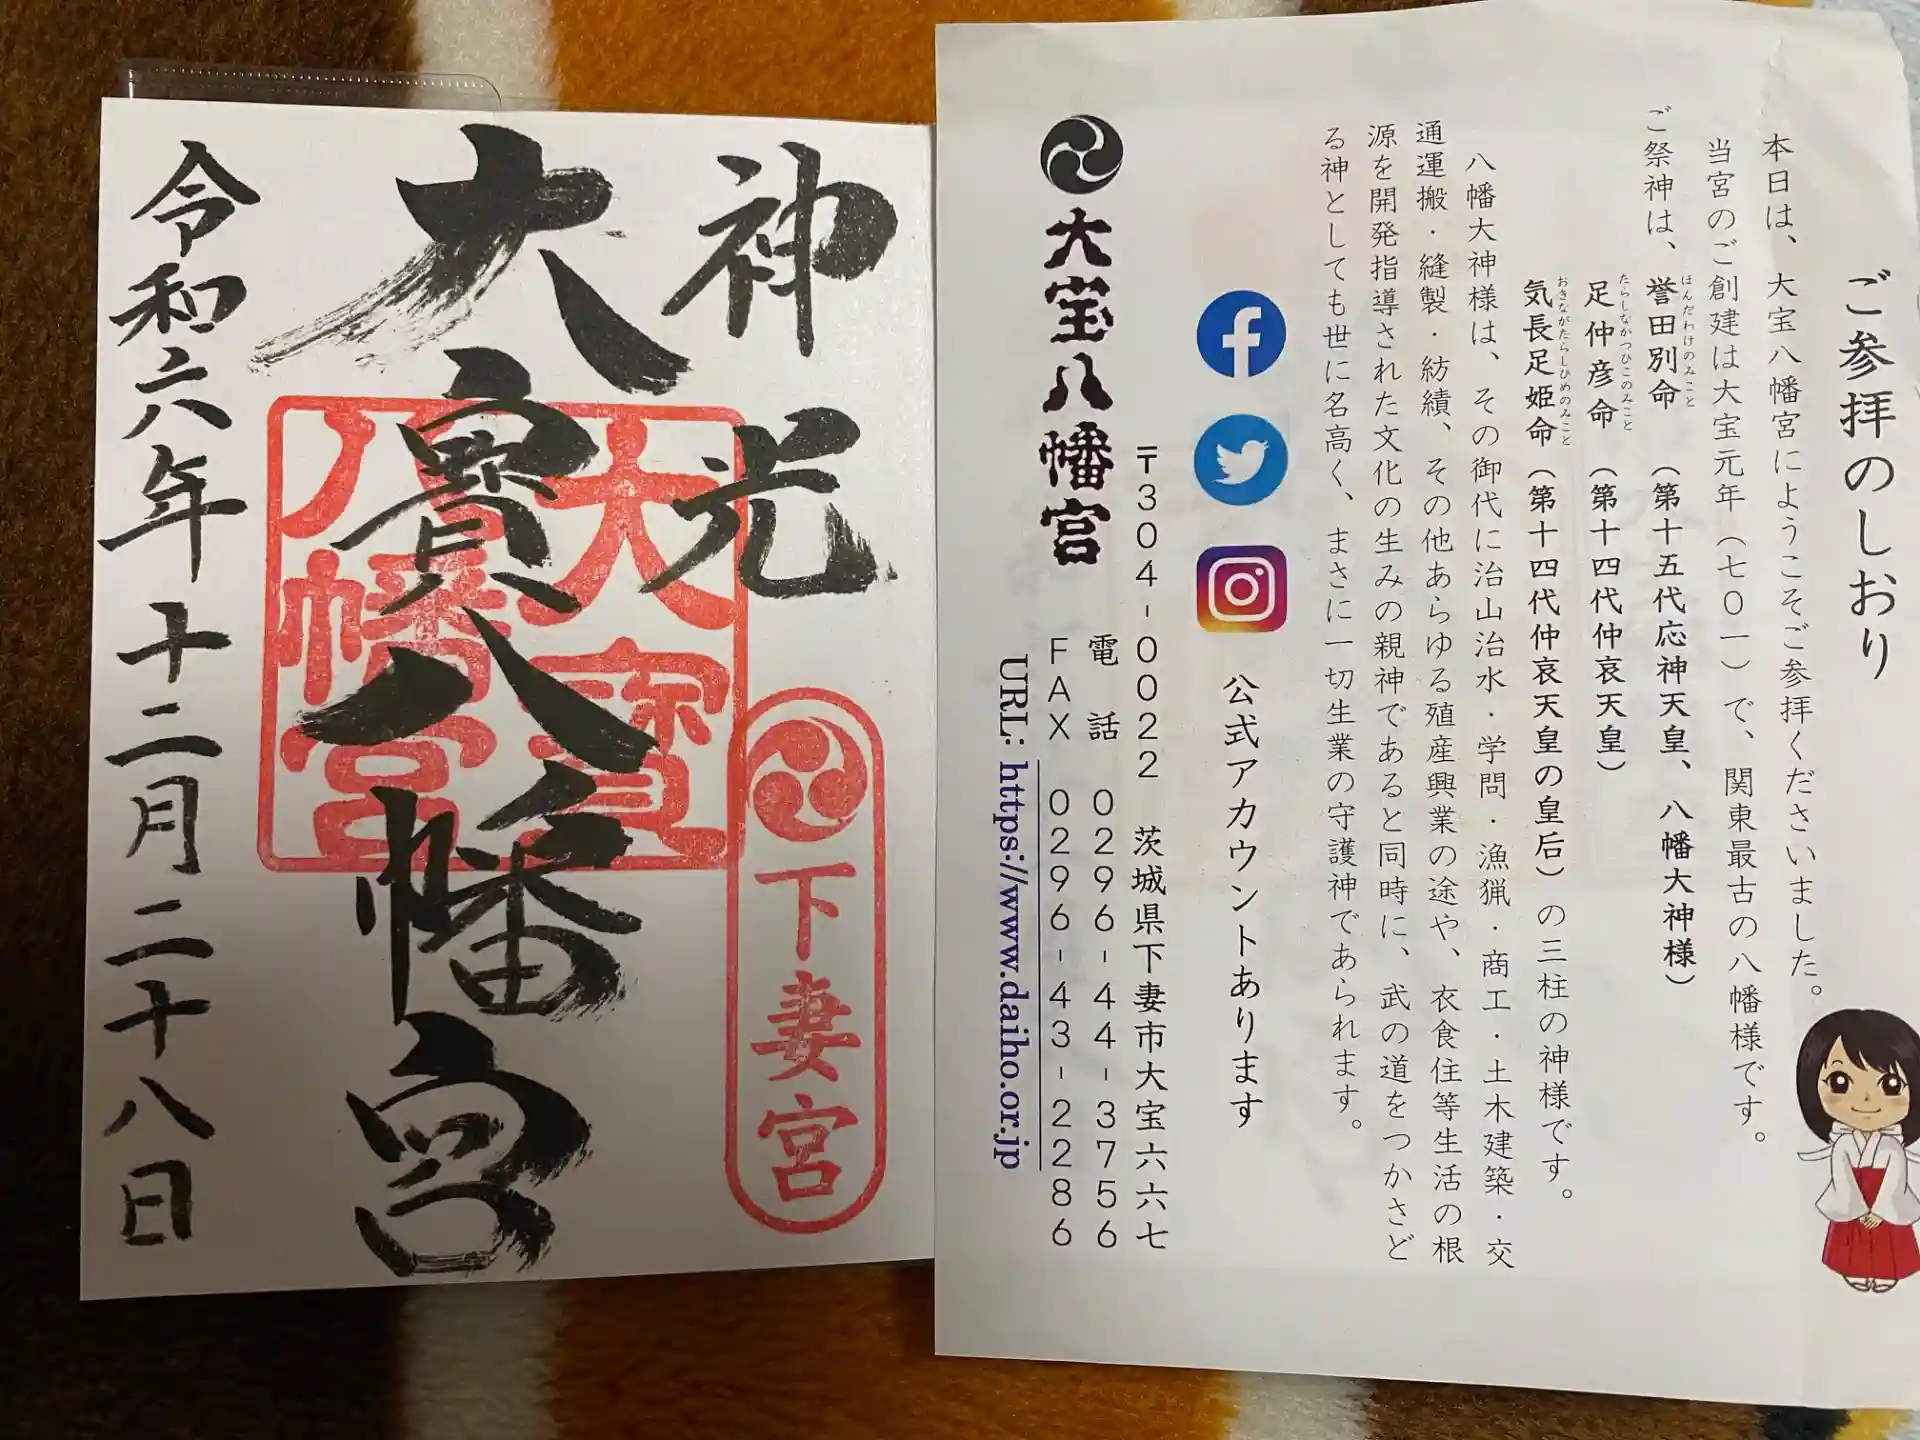 ご参拝のしおり
本日は、大宝八幡宮にようこそご参拝くださいました。
当宮のご創建は大宝元年（七〇一）で、関東最古の八幡様です。
ご祭神は、誉田別命（第十五代応神天皇、八幡大神様）
ほんだわけのみこと
足仲彦命（第十四代仲哀天皇）
たらしなかつひこのみこと
気長足姫命（第十四代仲哀天皇の皇后）の三柱の神様です。
おきながたらしひめのみこと
八幡大神様は、その御代に治山治水・学問・漁猟・商工・土木建築・交
通運搬・縫製・紡績、その他あらゆる殖産興業の途や、衣食住等生活の根
源を開発指導された文化の生みの親神であると同時に、武の道をつかさど
る神としても世に名高く、まさに一切生業の守護神であられます。
公式アカウントあります
〒304-0022 茨城県下妻市大宝六六七
電話 0296-44-3756
FAX 0296-43-2286
URL: https://www.daiho.or.jp
大宝八幡宮
神光
大寳八幡宮
令和六年十二月二十八日
大寳
八幡宮
下妻宮